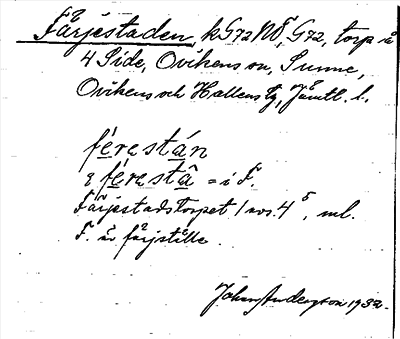 Färjestaden, k G72 NÖ, G72, torp u
4 Side, Ovikens sn, Sunne,
Ovikens och Hallens tg, Jämtl. l.
férestán
q férestâ = i F.
Färjestadstorpet 1 avs. 4⁵, ml.
F. är färjställe.
Johan Anderzon 1932.